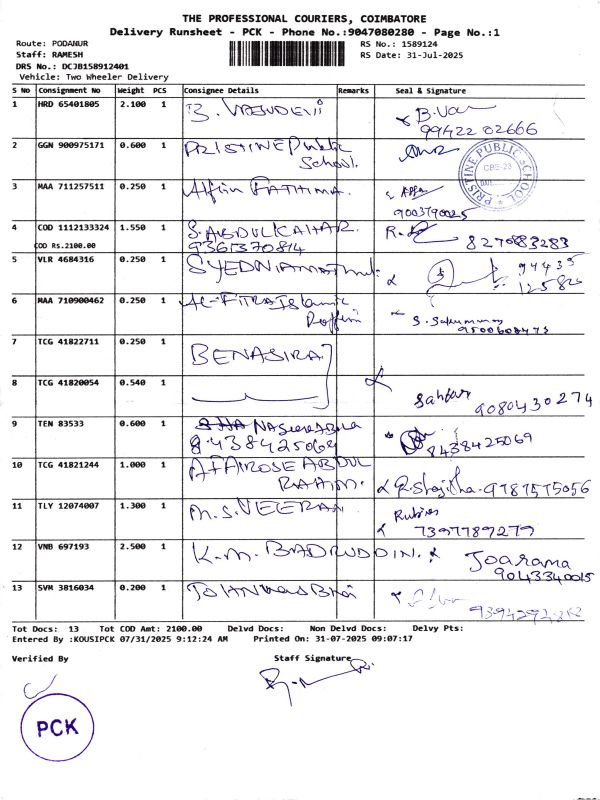 THE PROFESSIONAL COURIERS, COIMBATORE
Delivery Runsheet - PCK - Phone No.:9047080280 - Page No.:1
Route: PODANUR
Staff: RAMESH
DRS No.: DCJB158912401
Vehicle: Two Wheeler Delivery
RS No.: 1589124
RS Date: 31-Jul-2025
S No Consignment No Weight PCS Consignee Details Remarks Seal & Signature
1 HRD 65401805 2.100 1 B. VASUDEVJI B.Va
99422 02666
2 GGN 900975171 0.600 1 PRISTINE Public
School.
PRISTINE PUBLIC SCHOOL CBE-23
3 MAA 711257511 0.250 1 Affrin FATHIMA.
9003790025
4 COD 1112133324 1.550 1 S. ABDULKAHAR.
COD Rs.2100.00 9361370814 8270883283
5 VLR 4684316 0.250 1 94435
12582
6 MAA 710900462 0.250 1 Al-FITRA Islamic
9500608473
7 TCG 41822711 0.250 1 BENASIRA
8 TCG 41820054 0.540 1 9080430274
9 TEN 83533 0.600 1
8438425069 8438425069
10 TCG 41821244 1.000 1 AFAIROSE ABDUL
RAHIM. 9787575056
11 TLY 12074007 1.300 1 M.S. MEERAN
7397789279
12 VNB 697193 2.500 1 K.M. BADRUDDIN. Joarama
9043340015
13 SVM 3816034 0.200 1
Tot Docs: 13 Tot COD Amt: 2100.00 Delvd Docs: Non Delvd Docs: Delvy Pts:
Entered By :KOUSIPCK 07/31/2025 9:12:24 AM Printed On: 31-07-2025 09:07:17
Verified By Staff Signature
PCK